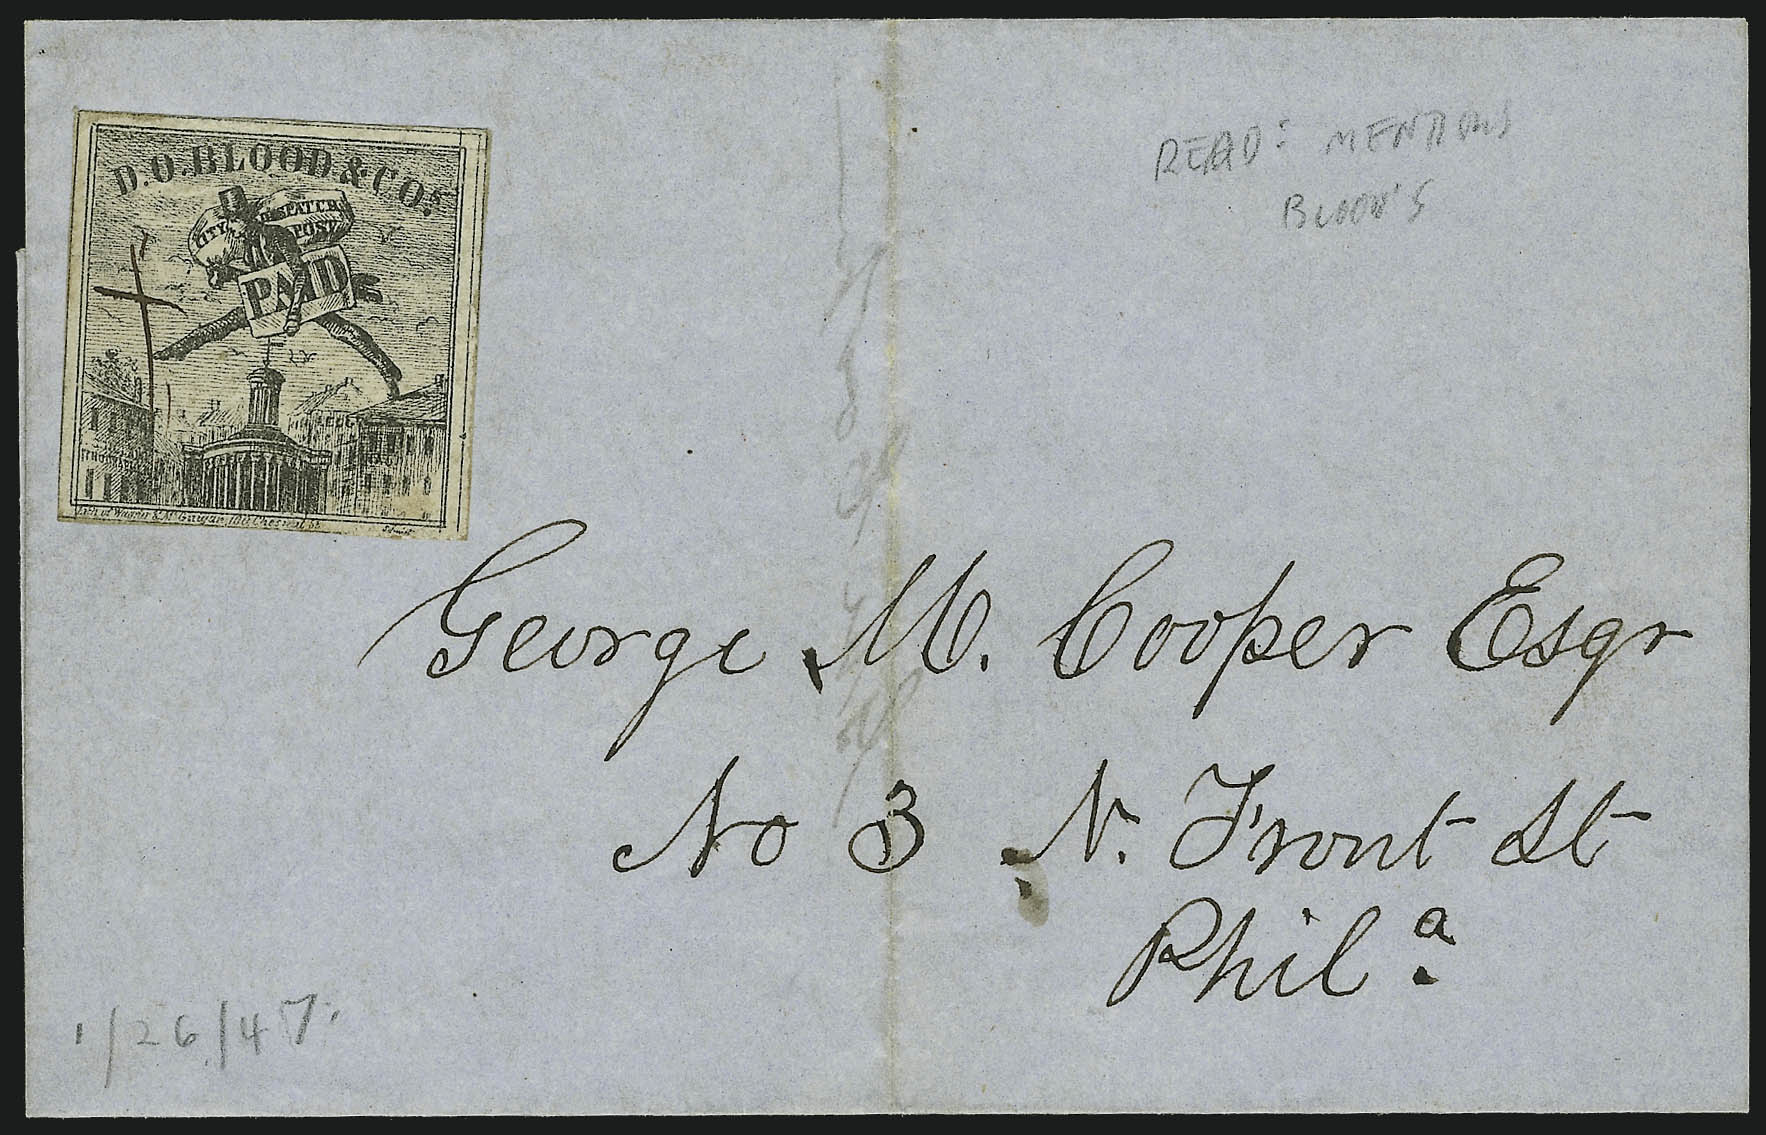 D.O.BLOOD & CO'S
CITY DESPATCH
POST
PAID
Lith of Wagner & McGuigan 100 Chesnut St
READ: MENTIONS
BLOOD'S
George M. Cooper Esqr
No 3 N. Front St
Phila
1/26/47.